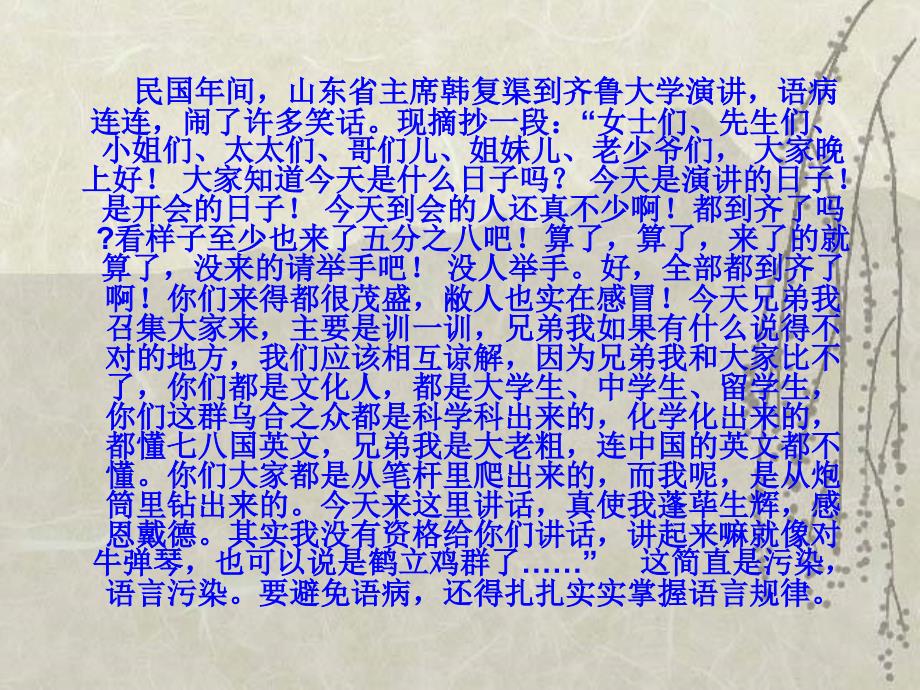 民国年间，山东省主席韩复渠到齐鲁大学演讲，语病
连连，闹了许多笑话。现摘抄一段：“女士们、先生们、
小姐们、太太们、哥们儿、姐妹儿、老少爷们， 大家晚
上好！ 大家知道今天是什么日子吗？ 今天是演讲的日子！
是开会的日子！ 今天到会的人还真不少啊！都到齐了吗
?看样子至少也来了五分之八吧！算了，算了，来了的就
算了，没来的请举手吧！ 没人举手。好，全部都到齐了
啊！你们来得都很茂盛，敝人也实在感冒！今天兄弟我
召集大家来，主要是训一训，兄弟我如果有什么说得不
对的地方，我们应该相互谅解，因为兄弟我和大家比不
了，你们都是文化人，都是大学生、中学生、留学生，
你们这群乌合之众都是科学科出来的，化学化出来的，
都懂七八国英文，兄弟我是大老粗，连中国的英文都不
懂。你们大家都是从笔杆里爬出来的，而我呢，是从炮
筒里钻出来的。今天来这里讲话，真使我蓬荜生辉，感
恩戴德。其实我没有资格给你们讲话，讲起来嘛就像对
牛弹琴，也可以说是鹤立鸡群了……” 这简直是污染，
语言污染。要避免语病，还得扎扎实实掌握语言规律。